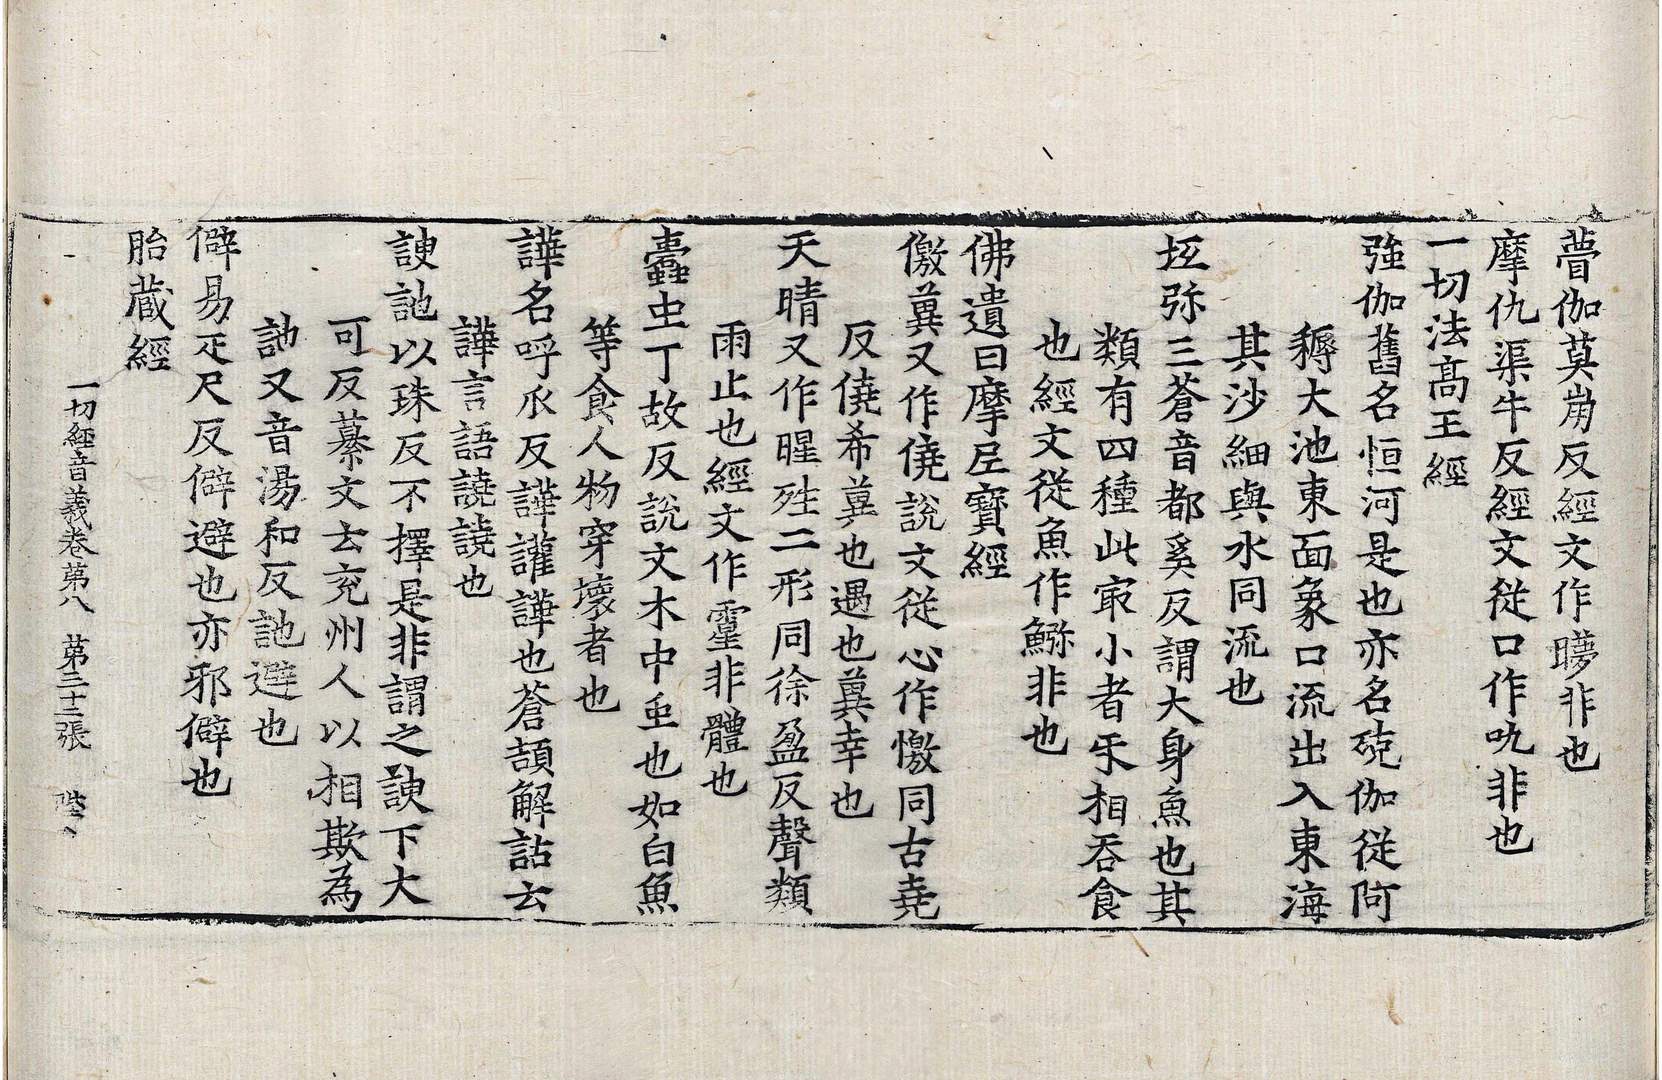 瞢伽莫崩反經文作矇非也
摩仇渠牛反經文従口作叺非也
一切法高王經
強伽舊名恒河是也亦名殑伽従阿
耨大池東面象口流出入東海
其沙細與水同流也
坻弥三蒼音都奚反謂大身魚也其
類有四種此㝡小者𤓰相吞食
也經文従魚作鰯非也
佛遺曰摩尼寶經
儌兾又作僥說文従心作憿同古尭
反僥希兾也遇也兾幸也
天晴又作暒殅二形同徐盈反聲類
雨止也經文作霪非體也
蠹虫丁故反說文木中䖝也如白魚
等食人物穿壞者也
譁名呼瓜反譁讙譁也蒼頡解詁云
譁言語譊譊也
諛訑以珠反不擇是非謂之諛下大
可反纂文云兖州人以相欺為
訑又音湯和反訑避也
僻易疋尺反僻避也亦邪僻也
胎蔵經
一切經音義卷苐八 苐三十三張